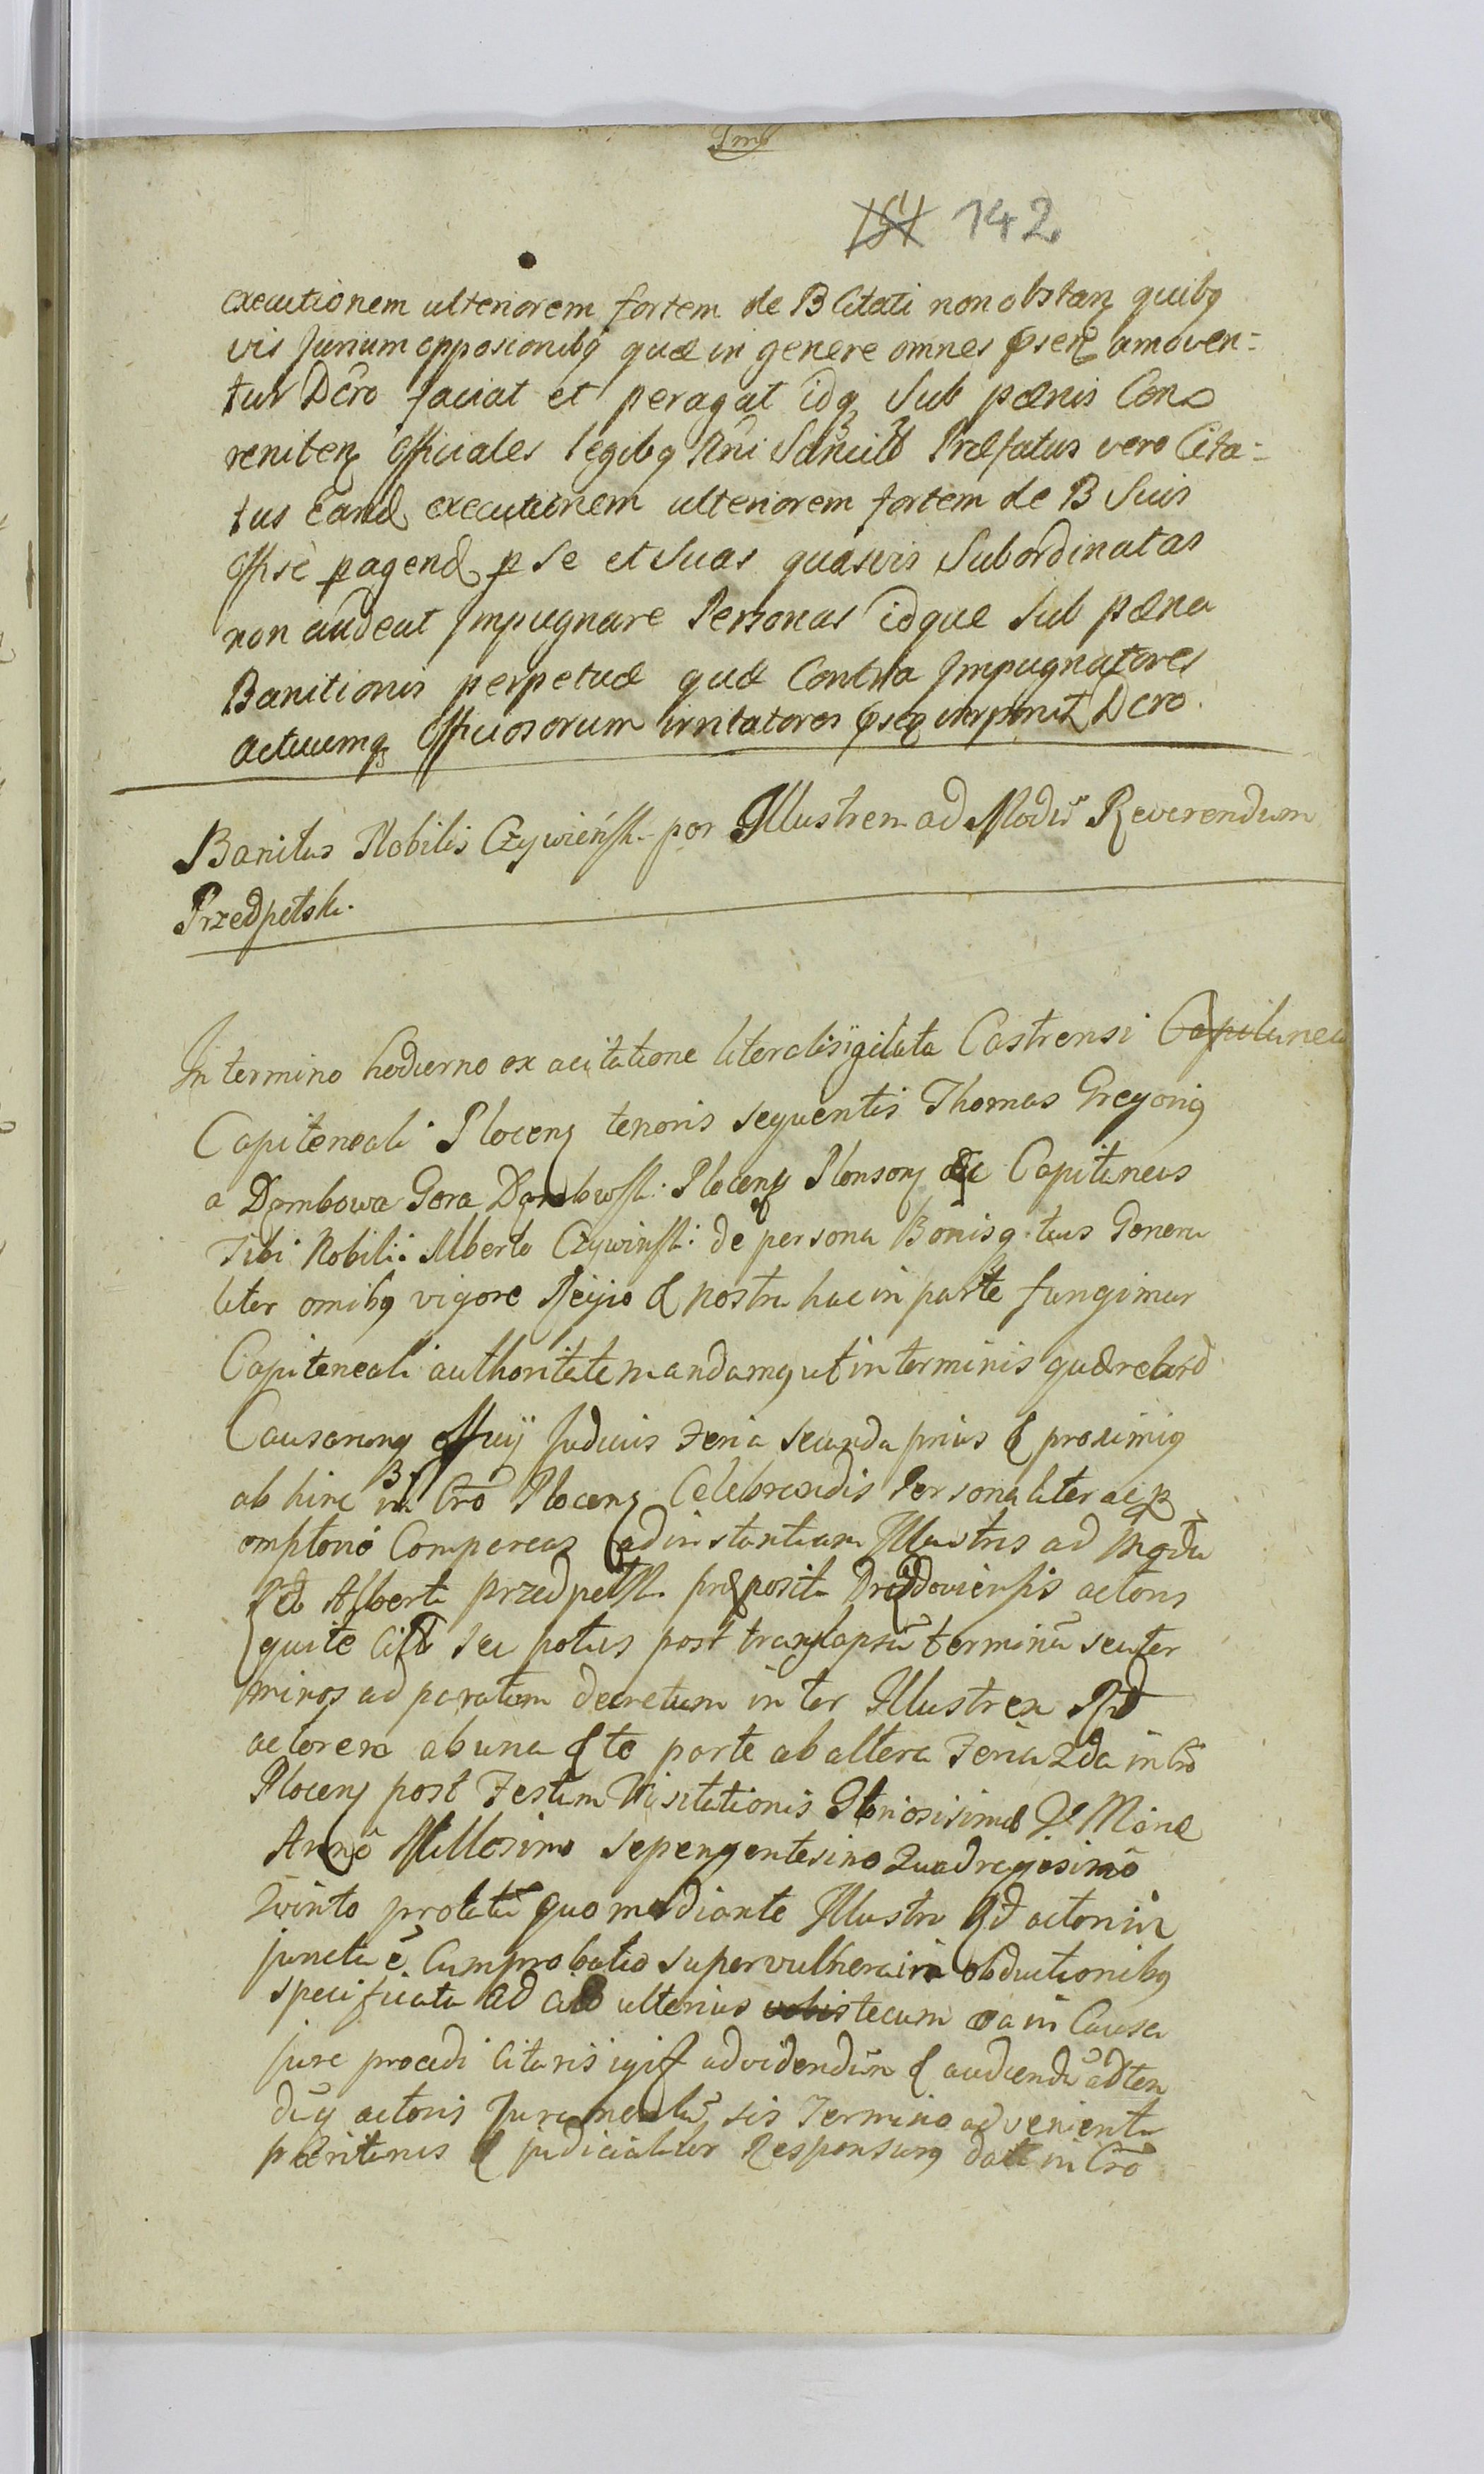 Jmg
151 142
executionem ulteriorem fortem de B Citati non obstan quibq
vis Jurium opposicionibq quæ in genere omnes pser amoven=
tur Dcro faciat et peragat idq Sub pænis Con
reniten Officiales legibq Rni Sancitt Præfatus vero Cita=
tus Eand executionem ulteriorem fortem de B Suis
Offse pagend p Se et Suas quasvis Subordinatas
non audeat Impugnare Personas idque Sub pæna
Banitionis perpetuæ quæ Contra Impugnatores
actuumq Officiosorum irritatores pseq Dcro.
Banitus Nobilis Czywieńsk. por Illustrem ad Modũ Reverendum
Przedpetsk.
In termino hodierno ex acitatione literali sigilata Castrensi Capitanea
Capiteneali Plocens tenoris sequentis Thomas Gregorig
a Dąmbowa Gora Dąmbowsk: Plocens Plonson Capitineus
Tibi Nobili: Alberto Czywinsk: de persona Bonisq. tuis Genera
liter omibq vigore Regio & nostra hac in parte fungimur
Capiteneali authoritate mandamq ut in terminis quærelard
Causarumq Officij Judiciis Feria secunda prius & proximiq
ab hinc in Cro Plocens Celebrandis Personaliter ac p
emptorie Compareas ad instantiam Illustris ad Modũ
Rd Alberti Przedpelsk præposita actoris
qui te Citt seu potius post translapsũ terminũ seu ter
minos ad paratum decretum inter Illustrem Rd
actorem ab una & te parte ab altera Feria 2da in Cro
Plocens post Festum Visitationis Gloriosisimæ V Mariæ
Anno Millesimo sepengentesimo Quadragesimo
Quinto prolatũ quo mediante Illustri Rd actori in
juncta ẽ Cumprobatio super vulnera in obductionibq
specificata ad ulterius vobis tecum ea in Causa
jure procedi Citaris igit ad videndũm & audiendũ ad ten
dũq actoris Juramentũ, sis Termino advenienti
pariturus & judicialiter Responsurq datt in Cro